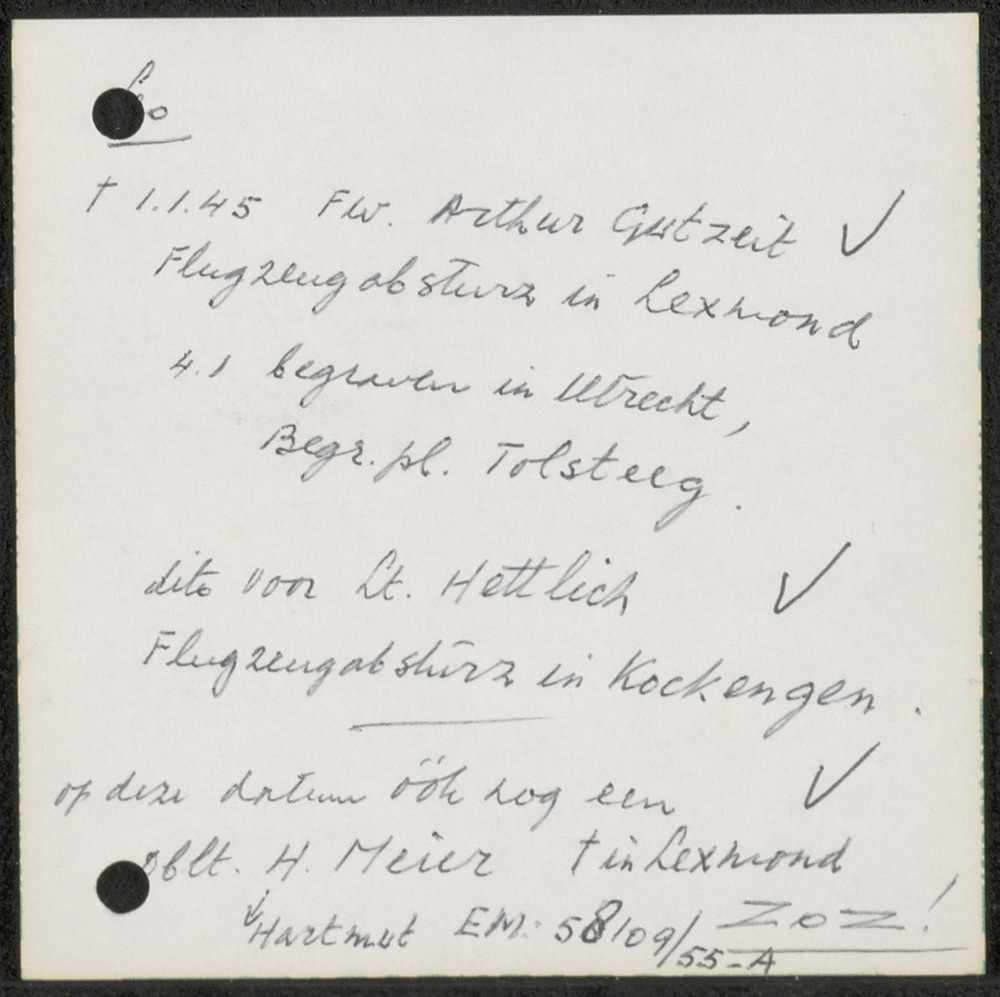 † 1.1.45 Fw. Arthur Gutzeit ✓
Flugzeugabsturz in Lexmond
4.1 begraven in Utrecht,
Begr. pl. Tolsteeg.
dito voor Lt. Hettlich ✓
Flugzeugabsturz in Kockengen.
op deze datum óók nog een ✓
Oblt. H. Meier † in Lexmond
Hartmut EM: 58109/55-A ZOZ!